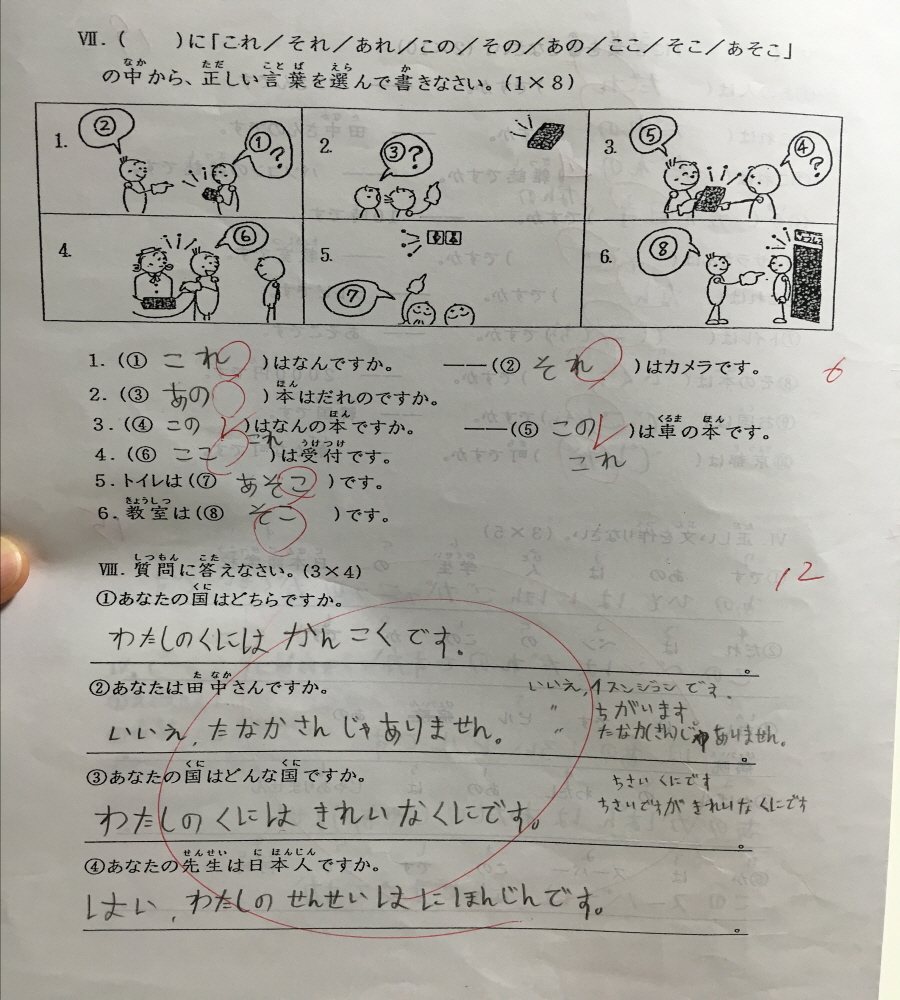 Ⅶ. (　　)に「これ／それ／あれ／この／その／あの／ここ／そこ／あそこ」
なか ただ ことば えら か
の中から、正しい言葉を選んで書きなさい。(1×8)
1. ② ①?
2. ③?
3. ⑤ ④?
4. ⑥
5. ⑦
6. ⑧
1. (① これ )はなんですか。 ――(② それ )はカメラです。 6
ほん
2. (③ あの )本はだれのですか。
ほん くるま ほん
3. (④ この )はなんの本ですか。 ――(⑤ この )は車の本です。
これ これ
うけつけ
4. (⑥ ここ )は受付です。
5. トイレは(⑦ あそこ )です。
きょうしつ
6. 教室は(⑧ そこ )です。
しつもん こた
Ⅷ. 質問に答えなさい。(3×4) 12
くに
①あなたの国はどちらですか。
わたしのくには かんこくです。
たなか
②あなたは田中さんですか。
いいえ、たなかさんじゃありません。
いいえ, イスンジョンです.
〃 ちがいます
〃 たなか(さん)じゃありません。
くに くに
③あなたの国はどんな国ですか。
わたしのくには きれいなくにです。
ちさい くにです
ちさいですが きれいなくにです
せんせい にほんじん
④あなたの先生は日本人ですか。
はい、わたしの せんせいは にほんじんです。